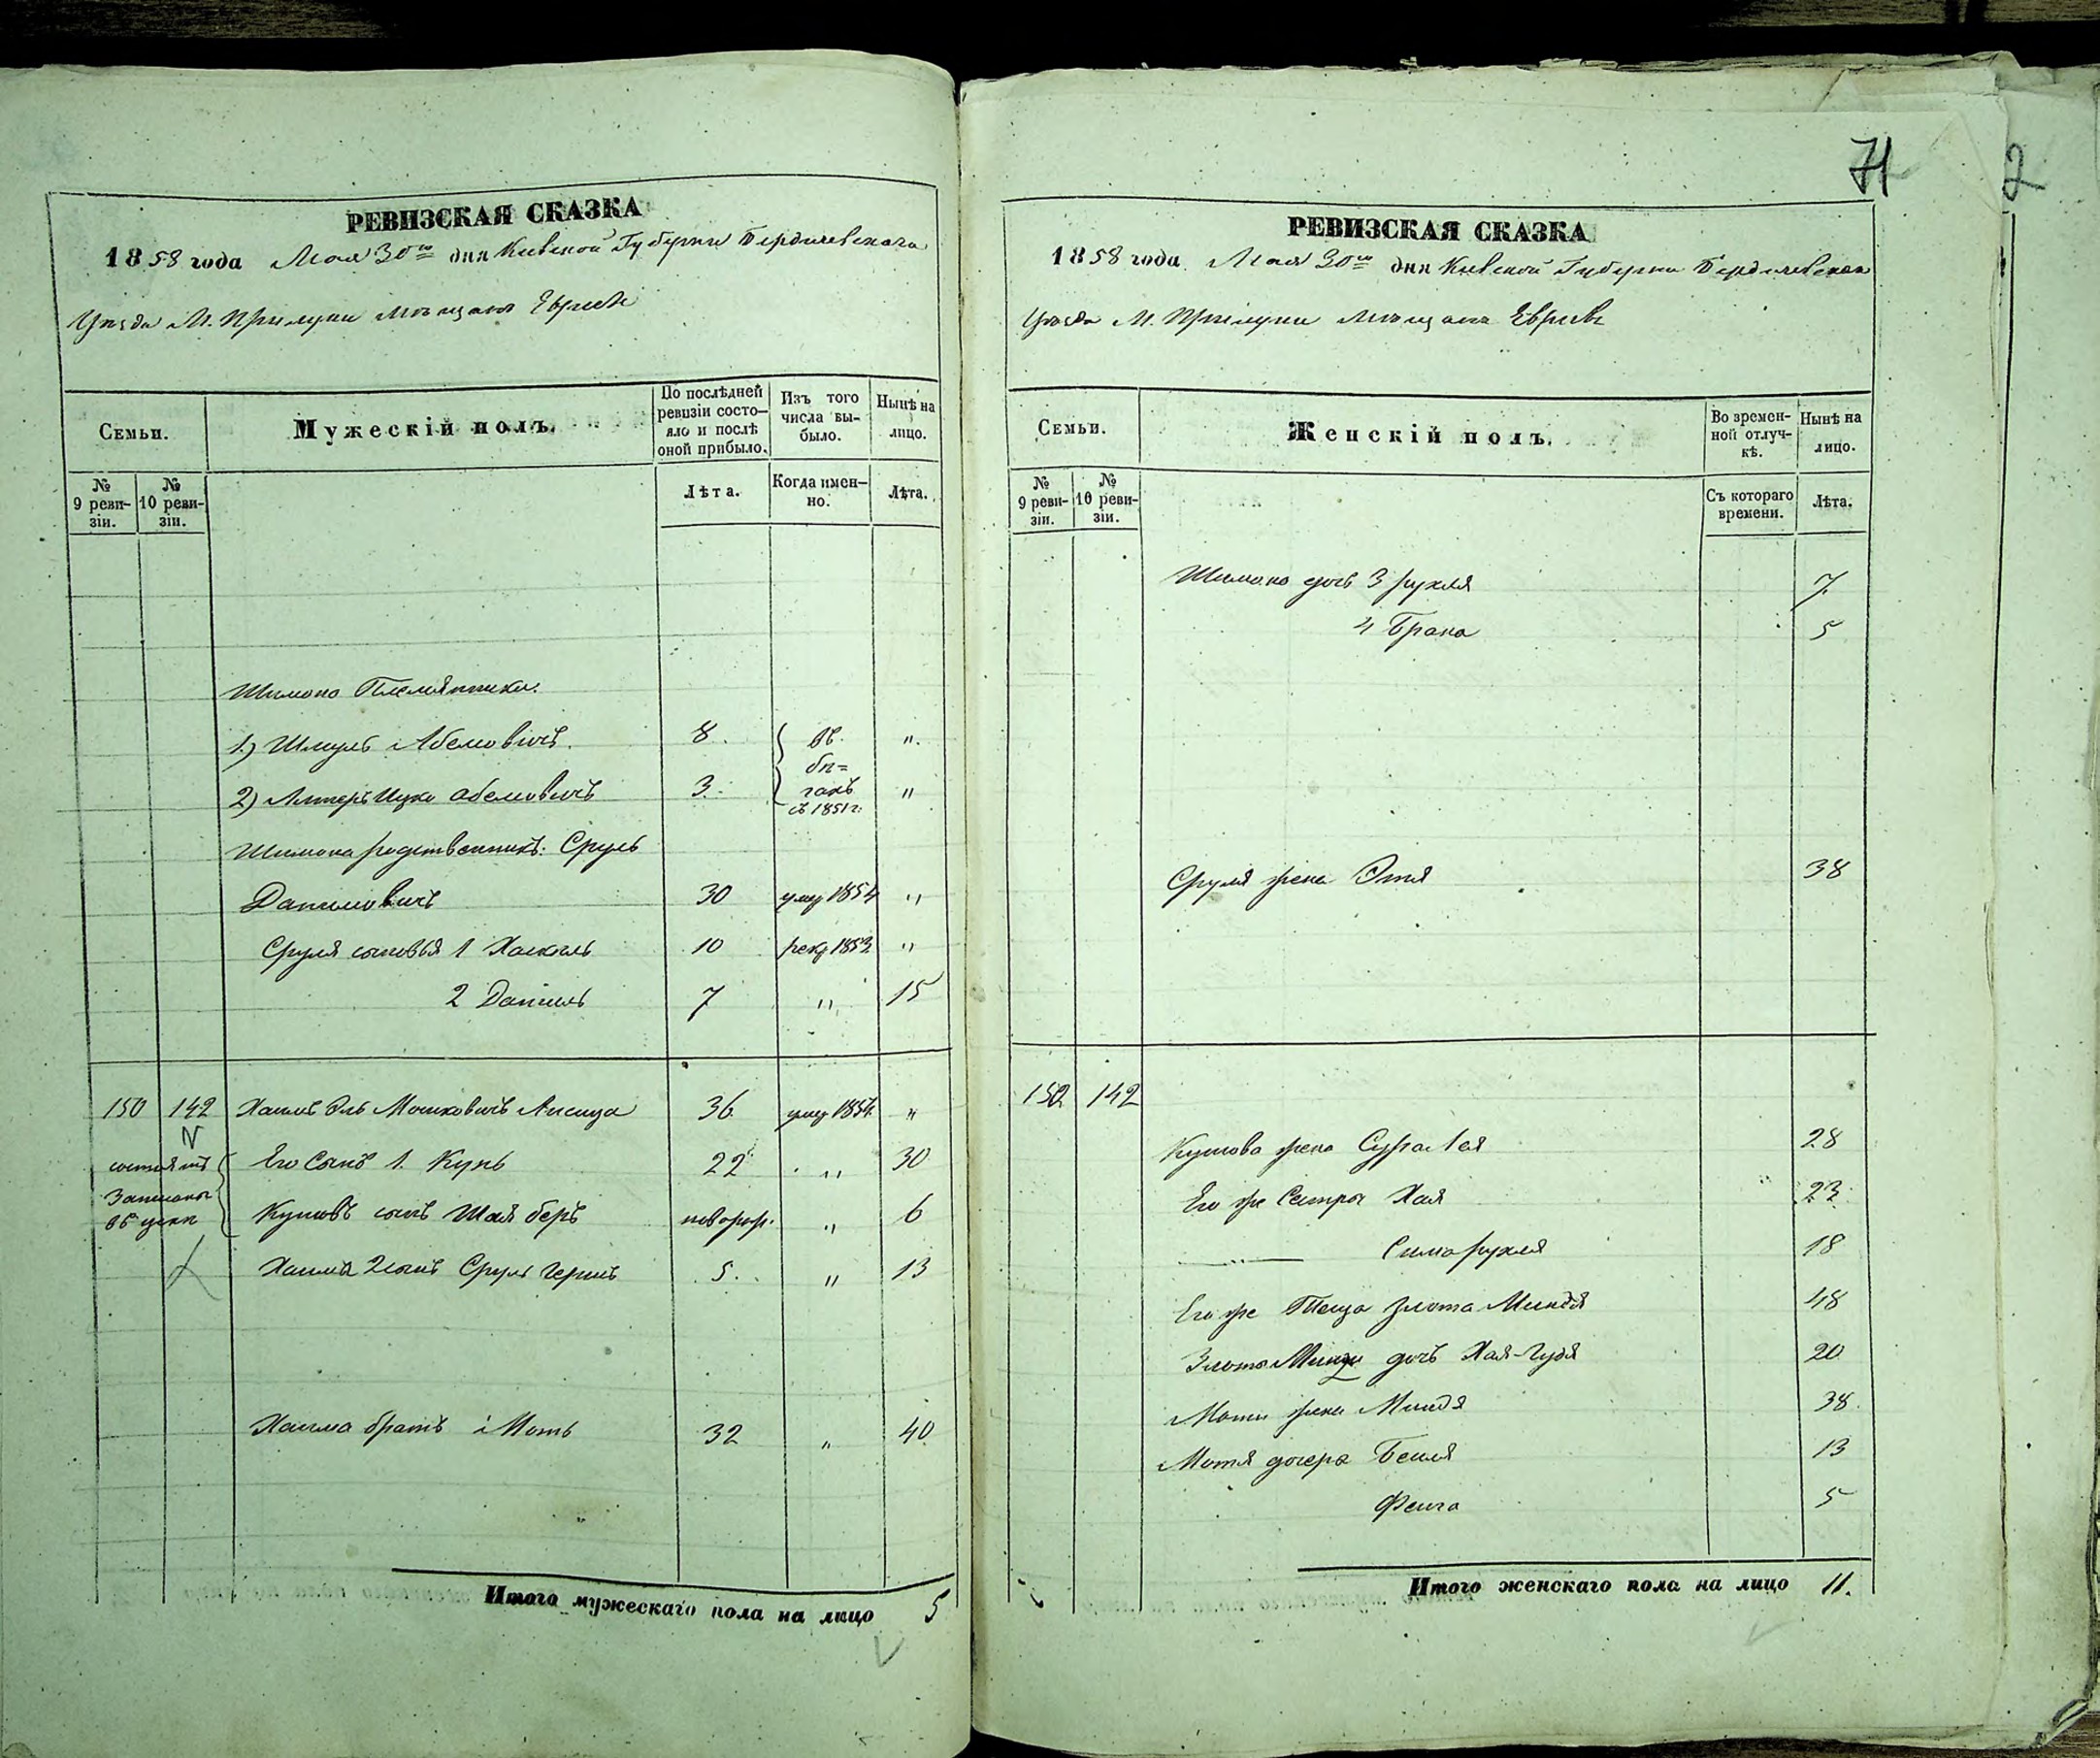 71
2
РЕВИЗСКАЯ СКАЗКА
1858 года Мая 30го дня Киевской Губернии Бердичевскаго
Уѣзда М. Прилуки мѣщанъ Евреевъ
Семьи.
Мужескій полъ.
По послѣдней ревизіи состояло и послѣ оной прибыло.
Изъ того числа выбыло.
Нынѣ на лицо.
№ 9 ревизіи.
№ 10 ревизіи.
Лѣта.
Когда именно.
Лѣта.
Шимона Племянники:
1.) Шмуль Абелювичъ. 8. въ бѣгахъ съ 1851 г. ".
2) Липеръ Ицко Абелювичъ 3. "
Шимона родственникъ: Сруль
Данилювичъ 30 умер 1854 "
Сруля сыновья 1 Хаскель 10 рекр 1853 "
2 Даниль 7 " 15
150 142 Хаимъ Эль Мошковичъ Лисица 36 умер 1854 "
Его Сынъ 1. Кунь 22 " 30
Куновъ сынъ Шая Беръ новорож. " 6
Хаима 2 сынъ Сруль Гершъ 5. " 13
Хаима братъ Моть 32 " 40
Итого мужескаго пола на лицо 5
РЕВИЗСКАЯ СКАЗКА
1858 года Мая 30го дня Киевской Губернии Бердичевскаго
Уѣзда М. Прилуки мѣщанъ Евреевъ
Семьи.
Женскій полъ.
Во времен-ной отлуч-кѣ.
Нынѣ на лицо.
№ 9 реви-зіи.
№ 10 реви-зіи.
Съ котораго времени.
Лѣта.
Шимона дочь 3 Рухля 7
4 Брана 5
Сруля жена Этя 38
150 142
Кунова жена Сура Лея 28
Его же Сестры Хая 23
Сима Рухля 18
Его же Теща Злота Миндя 48
Злоты Минди дочь Хая-Гудя 20
Моти жена Миндя 38
Мотя дочери Бейля 13
Фейга 5
Итого женскаго пола на лицо 11.